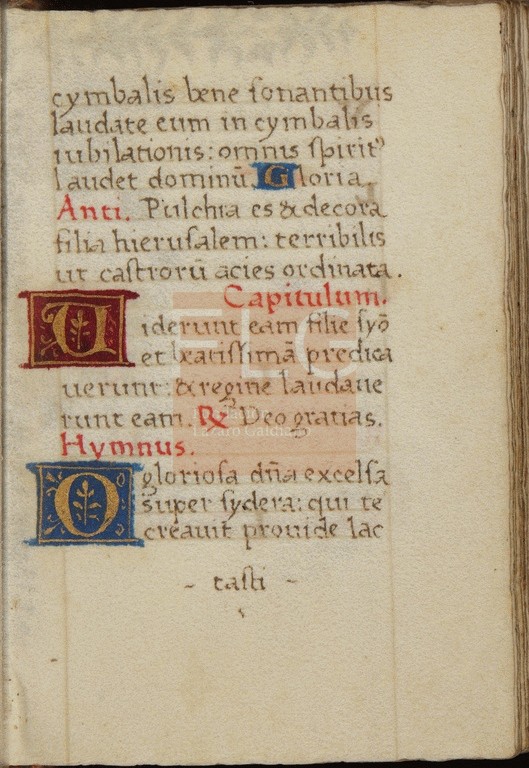 cymbalis bene sonantibus
laudate eum in cymbalis
iubilationis: omnis spirit⁹
laudet dominū. Gloria.
Anti. Pulchra es & decora
filia hierusalem: terribilis
ut castrorū acies ordinata.
Capitulum.
Uiderunt eam filie syō
et beatissimā predica
uerunt: & regine laudaue
runt eam. ℞ Deo gratias.
Hymnus.
O gloriosa dña excelsa
super sydera: qui te
creauit prouide lac
- tasti -
FLG
Lázaro Galdiano